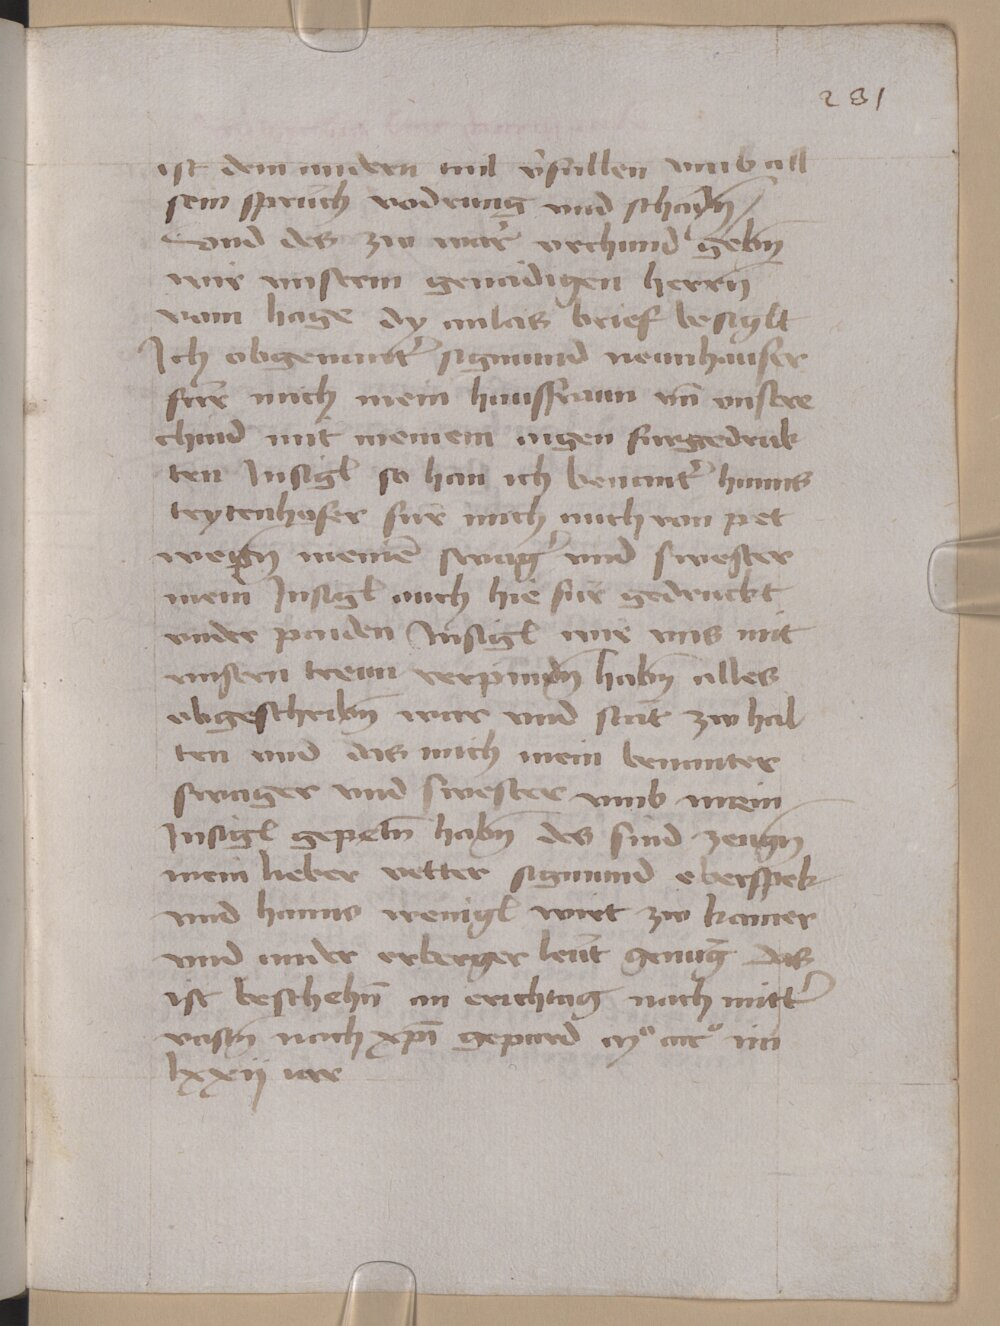 231
ist dem andern tail v̉fallen vmb all
sein sprüch vodrung vnd schädn̄
Vnd des zw war̉ vrchund gebn̄
wir vnserm genädigen herrn̄
vom hage dy anlas brief besiglt
Ich obgenant̉ sigmund neunhauser
für mich mein hausfraun vn̄ vnsere
chind mit meinem aigen furgedruk
ten Insigl so han ich benant̉ hanns
teytenhofer für mich auch von pet
wegn̄ meinē swag̉ vnd swester
mein Insigl auch hie für gedruckt
vnder paiden Insigl wir vns mit
vnsern trewn verpindn̄ habn̄ alles
obgeschribn̄ war vnd stät zw hal
ten vnd das mich mein benanter
swager vnd swester vmb mein
Insigl gepetn̄ habn̄ des sind zeugn̄
mein lieber vetter sigmund eberspek
vnd hanns wenigl wirt zw kamer
vnd ander erberger leüt genug das
ist beschehn̄ an erichtag nach mitt̉
vastn̄ nach xp̄i gepurd mº ccccº im
lxxij iar